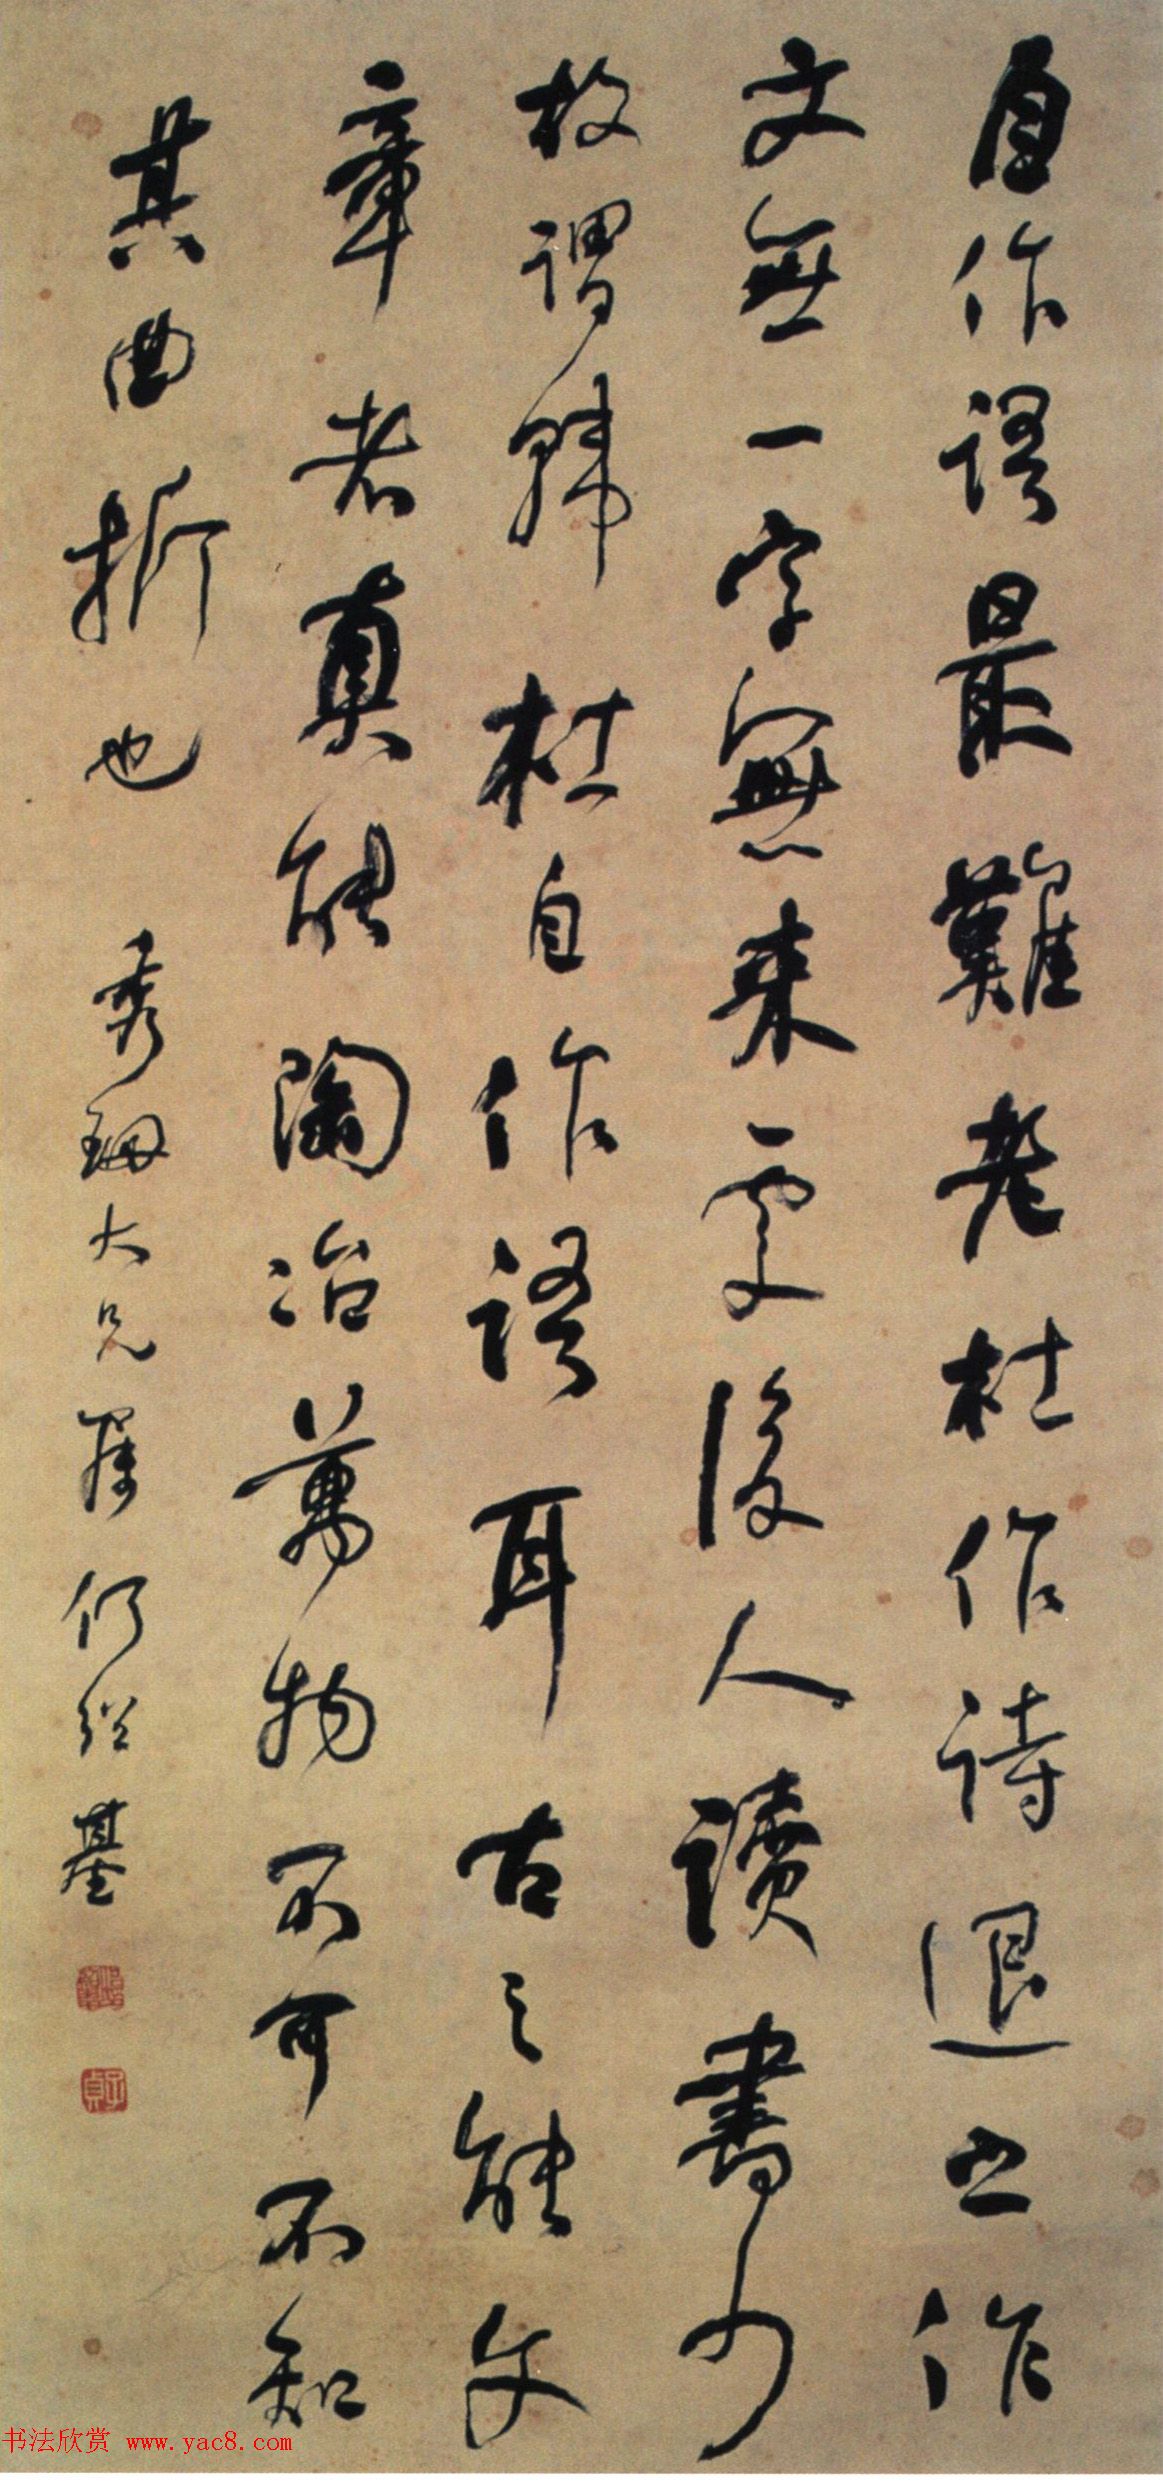 自作語最難老杜作詩退之作
文無一字無来處後人讀書少
故謂韓杜自作語耳古之能文
章者真能陶冶萬物不可不知
其曲折也
秀珊大兄屬 何紹基
子貞
书法欣赏 www.yac8.com